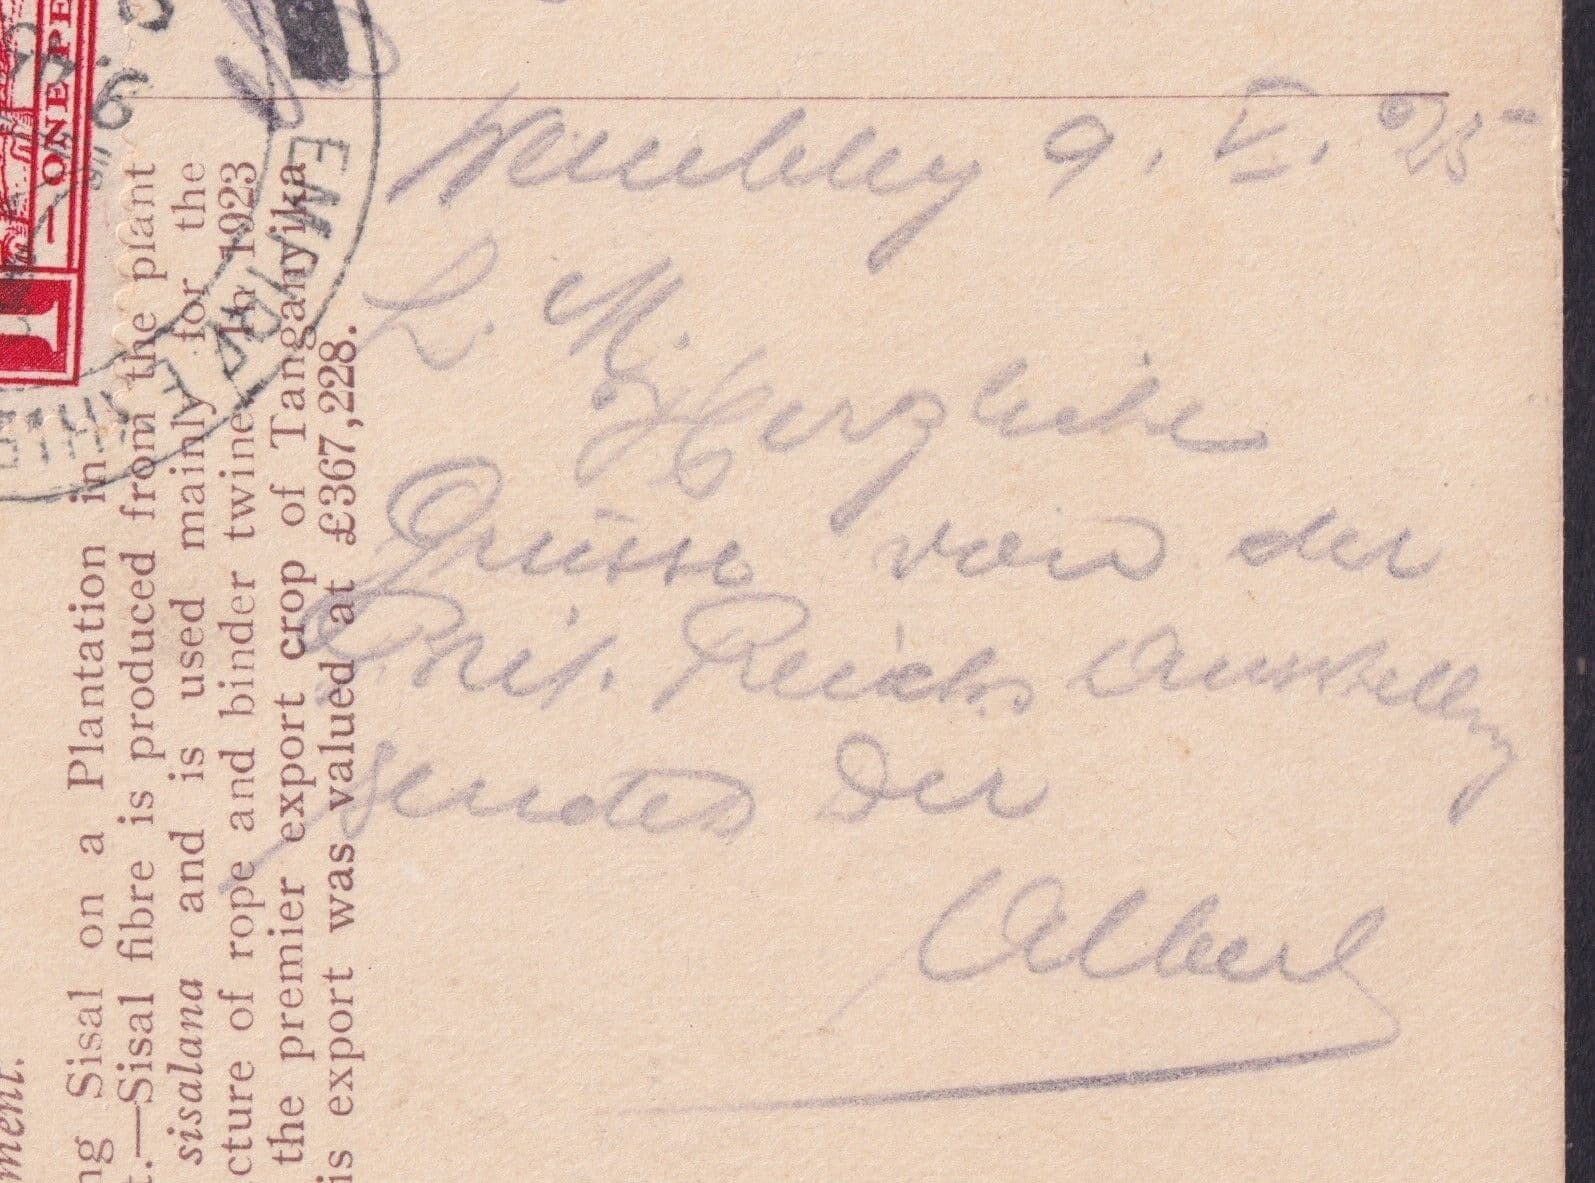 Wembley 9. V. 25
L. M. Herzliche
Grüsse von der
Brit. Reichs Ausstellung
sendet Dir
Albert
ng Sisal on a Plantation in
t.—Sisal fibre is produced from the plant
sisalana and is used mainly for the
cture of rope and binder twine. In 1923
the premier export crop of Tanganyika
is export was valued at £367,228.
ment.
ONE PE
1
EMPIRE EXHI